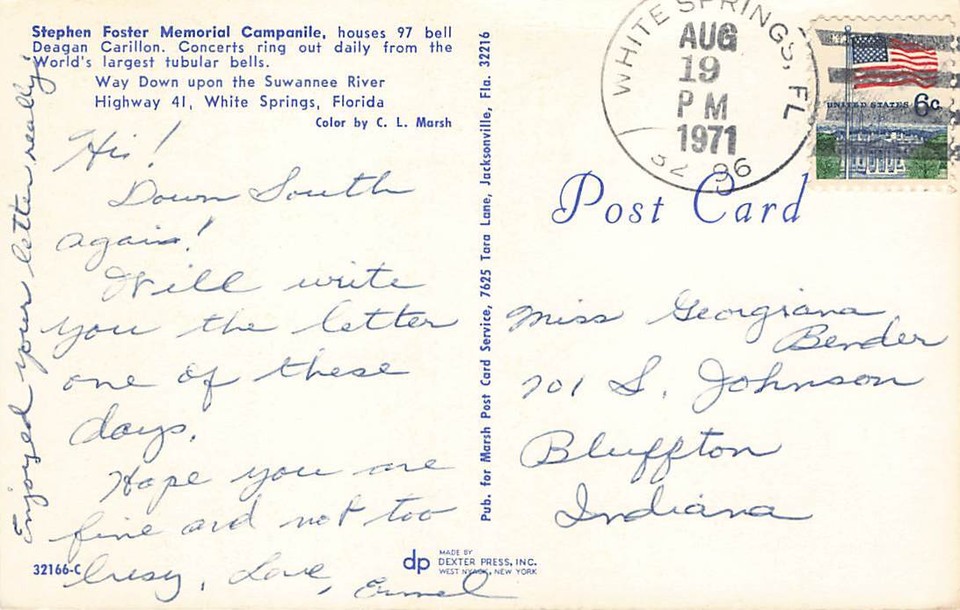 Stephen Foster Memorial Campanile, houses 97 bell
Deagan Carillon. Concerts ring out daily from the
World's largest tubular bells.
Way Down upon the Suwannee River
Highway 41, White Springs, Florida
Color by C. L. Marsh
Hi!
Down South
again!
Will write
you the letter
one of these
days.
Hope you are
fine and not too
busy. Love,
Enjoyed your letter really.
32166-C
dp
MADE BY
DEXTER PRESS, INC.
WEST NYACK, NEW YORK
Pub. for Marsh Post Card Service, 7625 Tara Lane, Jacksonville, Fla. 32216
WHITE SPRINGS, FL
AUG
19
PM
1971
UNITED STATES 6c
Post Card
Miss Georgiana
Bender
701 S. Johnson
Bluffton
Indiana